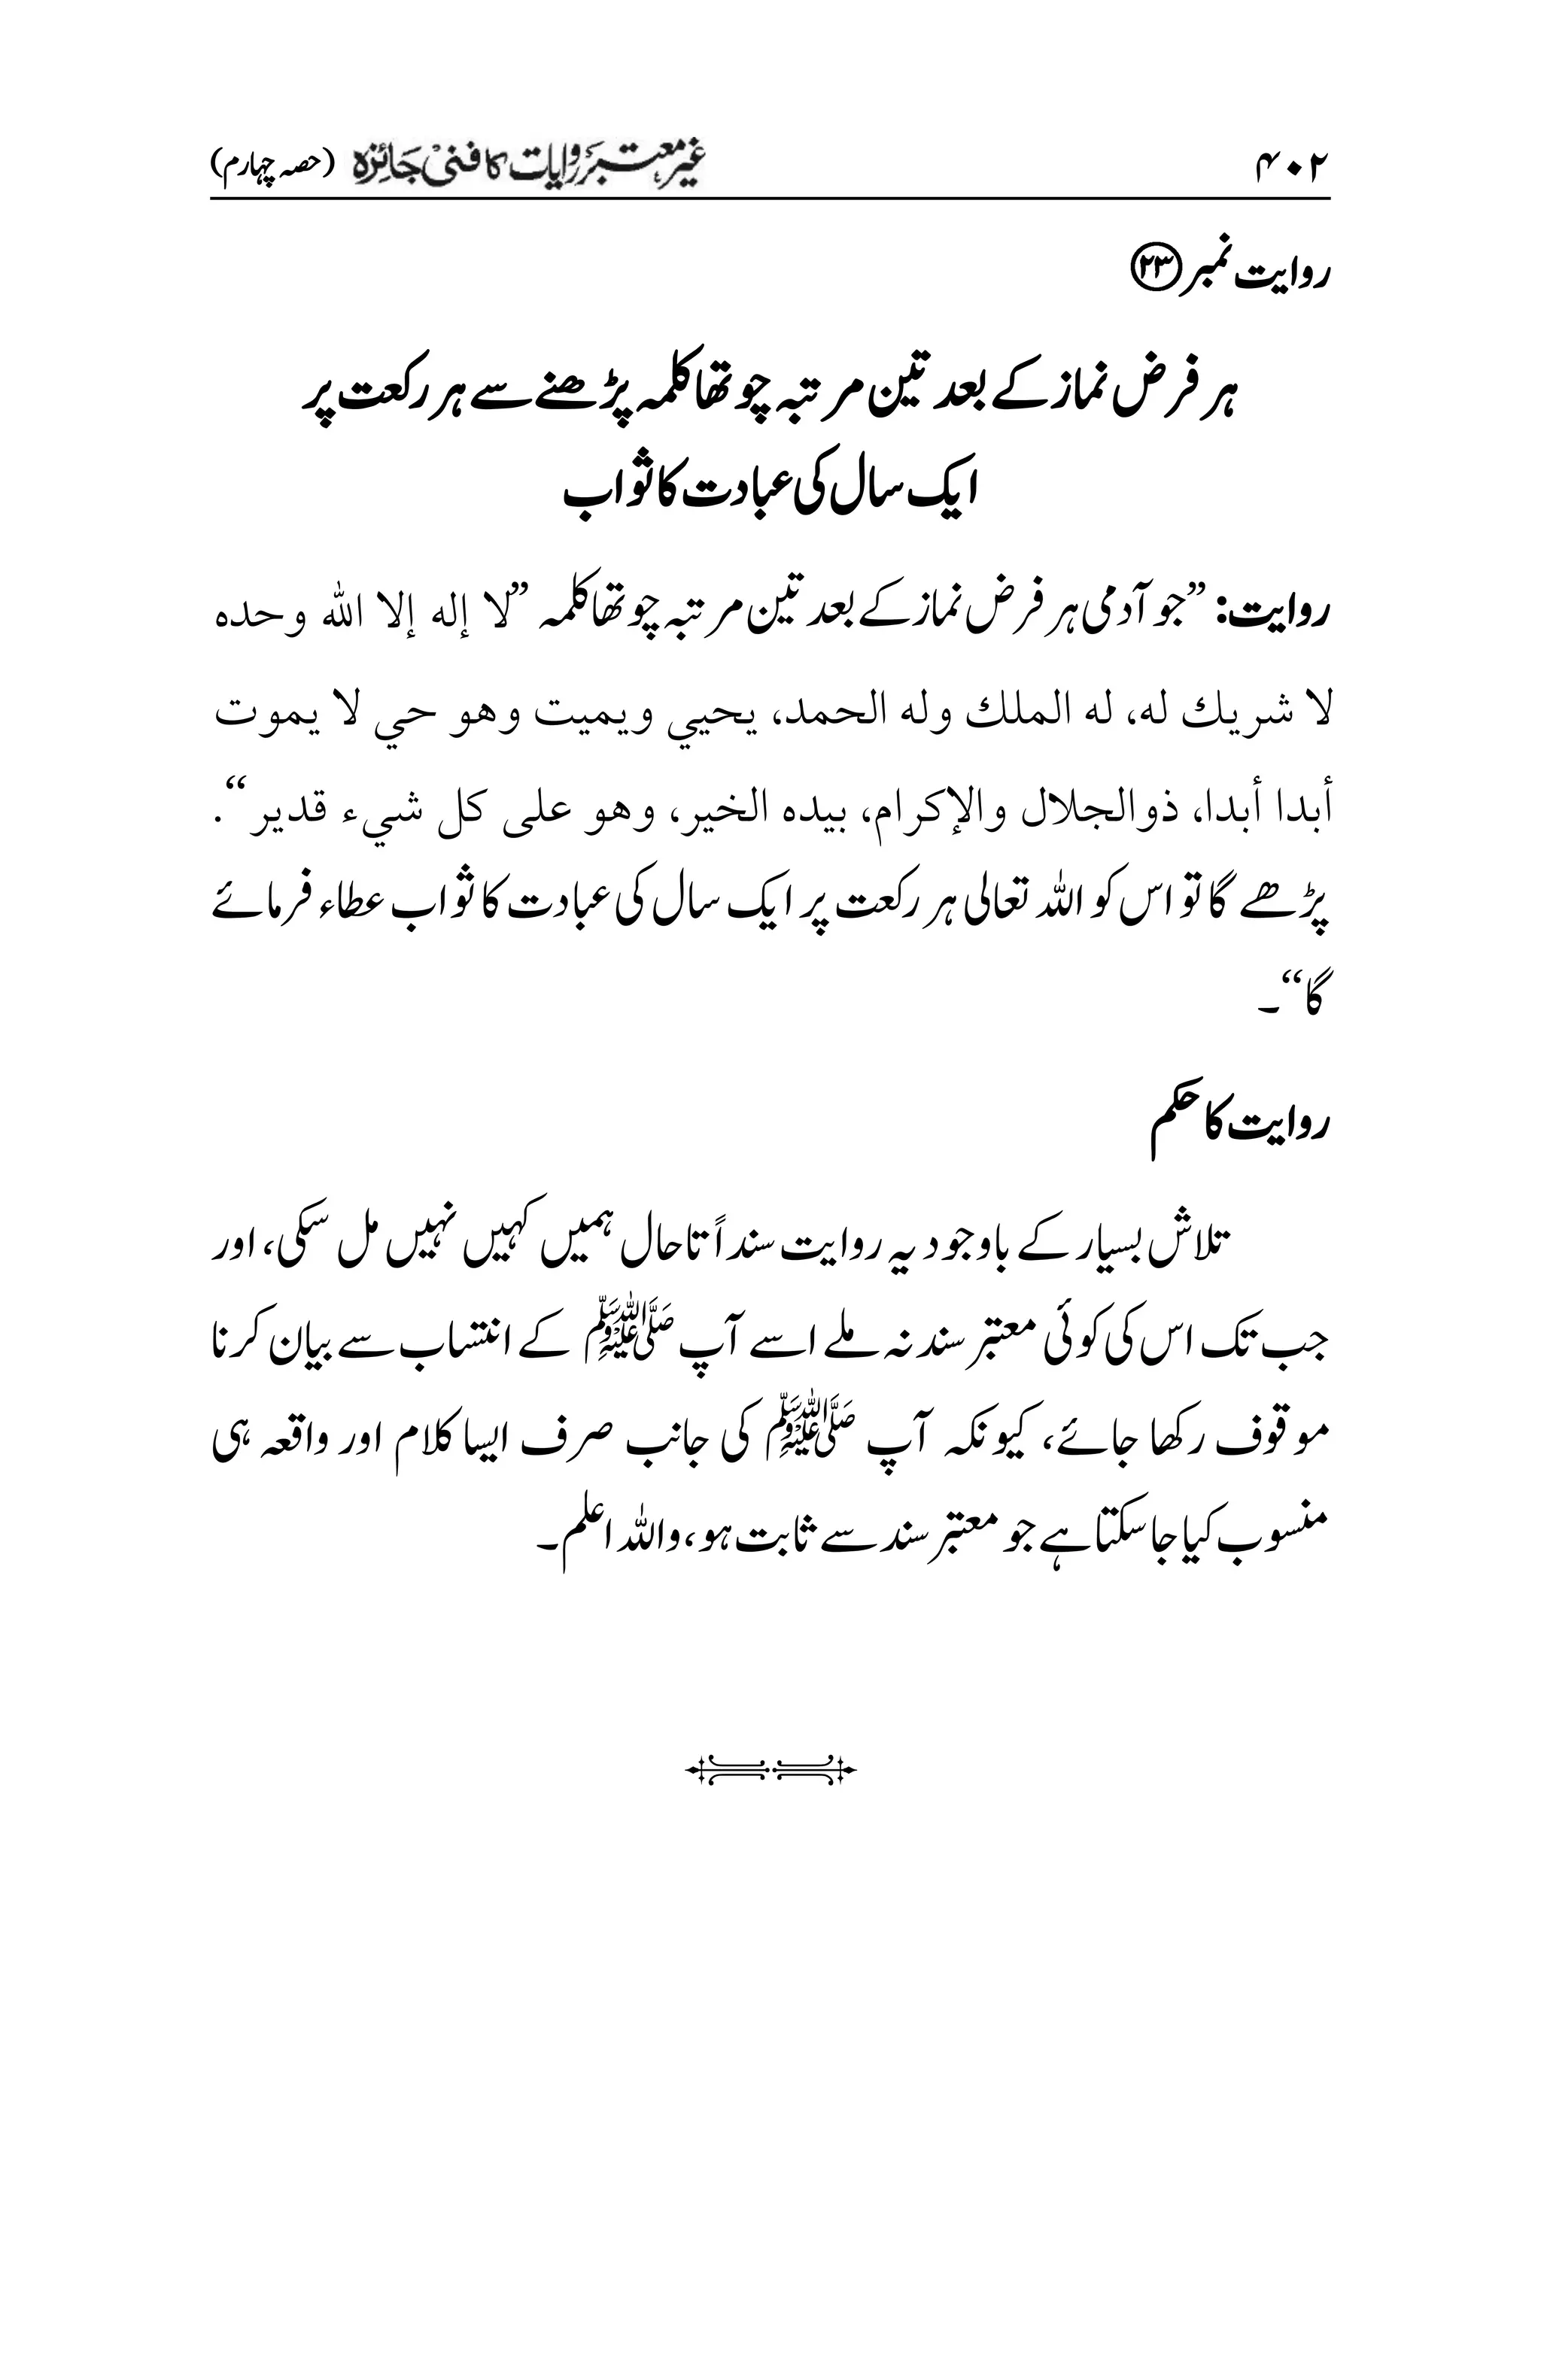 ۴۰۲ غیر معتبر روایات کا فنی جائزہ (حصہ چہارم)
روایت نمبر ۲۳
ہر فرض نماز کے بعد تین مرتبہ چوتھا کلمہ پڑھنے سے ہر رکعت پر
ایک سال کی عبادت کا ثواب
روایت: ”جو آدمی ہر فرض نماز کے بعد تین مرتبہ چوتھا کلمہ ”لا إله إلا الله وحده
لا شريك له، له الملك وله الحمد، يحيي ويميت وهو حي لا يموت
أبدا أبدا، ذوالجلال والإكرام، بيده الخير، وهو على كل شيء قدير“.
پڑھے گا تو اس کو اللہ تعالی ہر رکعت پر ایک سال کی عبادت کا ثواب عطاء فرمائے
گا“۔
روایت کا حکم
تلاش بسیار کے باوجود یہ روایت سنداً تاحال ہمیں کہیں نہیں مل سکی، اور
جب تک اس کی کوئی معتبر سند نہ ملے اسے آپ ﷺ کے انتساب سے بیان کرنا
موقوف رکھا جائے، کیونکہ آپ ﷺ کی جانب صرف ایسا کلام اور واقعہ ہی
منسوب کیا جا سکتا ہے جو معتبر سند سے ثابت ہو، واللہ اعلم۔